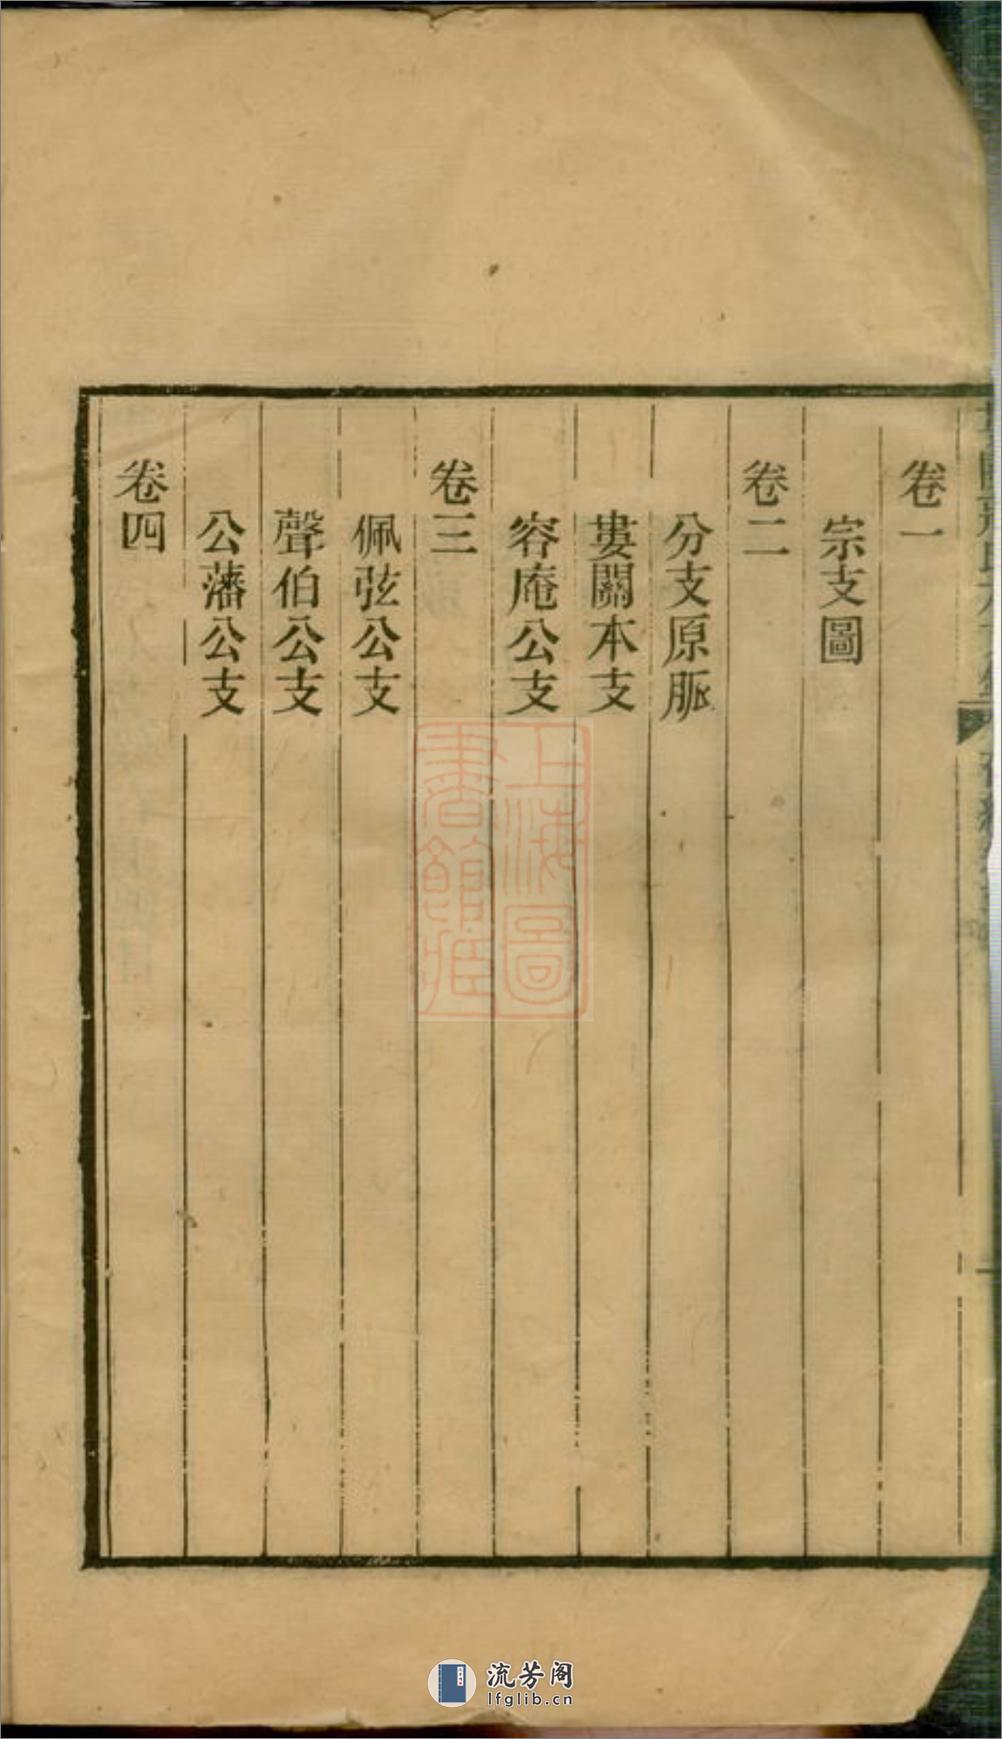 卷一
宗支圖
卷二
分支原脈
婁關本支
容庵公支
卷三
佩弦公支
聲伯公支
公藩公支
卷四
上海圖
書館藏
流芳阁
lfglib.cn